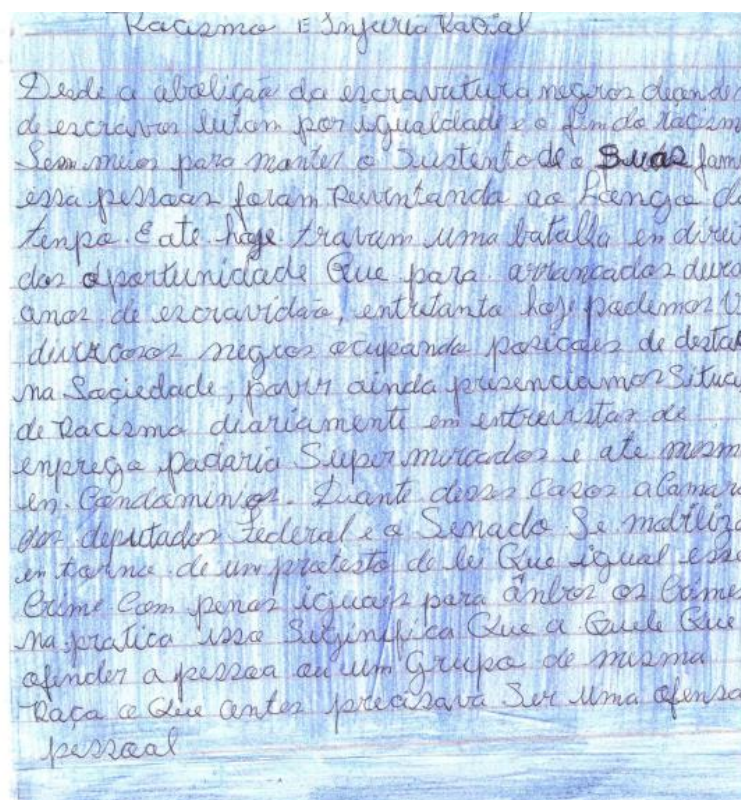 Racismo E Injuria Racial
Desde a abolição da escravatura negros
de escravos lutam por igualdade e o fim do racism
Sem meios para manter o Sustento de o Suas fam
essa pessoas foram ao Longo d
tenpo. E ate hoje travam uma batalla en direi
dos oportunidade Que para arrancados dura
anos de escravidão, entretanto hoje podemos V
negros ocupando posicoes de desta
na Sociedade, ainda presenciamos Situac
de Racismo diariamente en entrevistas de
enprego padaria Super mircados e ate mesm
en Condominios. desses Casos a Camara
dos deputados Federal e o Senado Se mobiliza
en torno de um protesto de lei Que igual esse
Crime Com penas iguais para ânbos os Crimes
na pratica isso Que a Quele Que
ofender a pessoa ou um Grupo de mesma
Raça o Que antes precisava Ser uma ofensa
pessoal